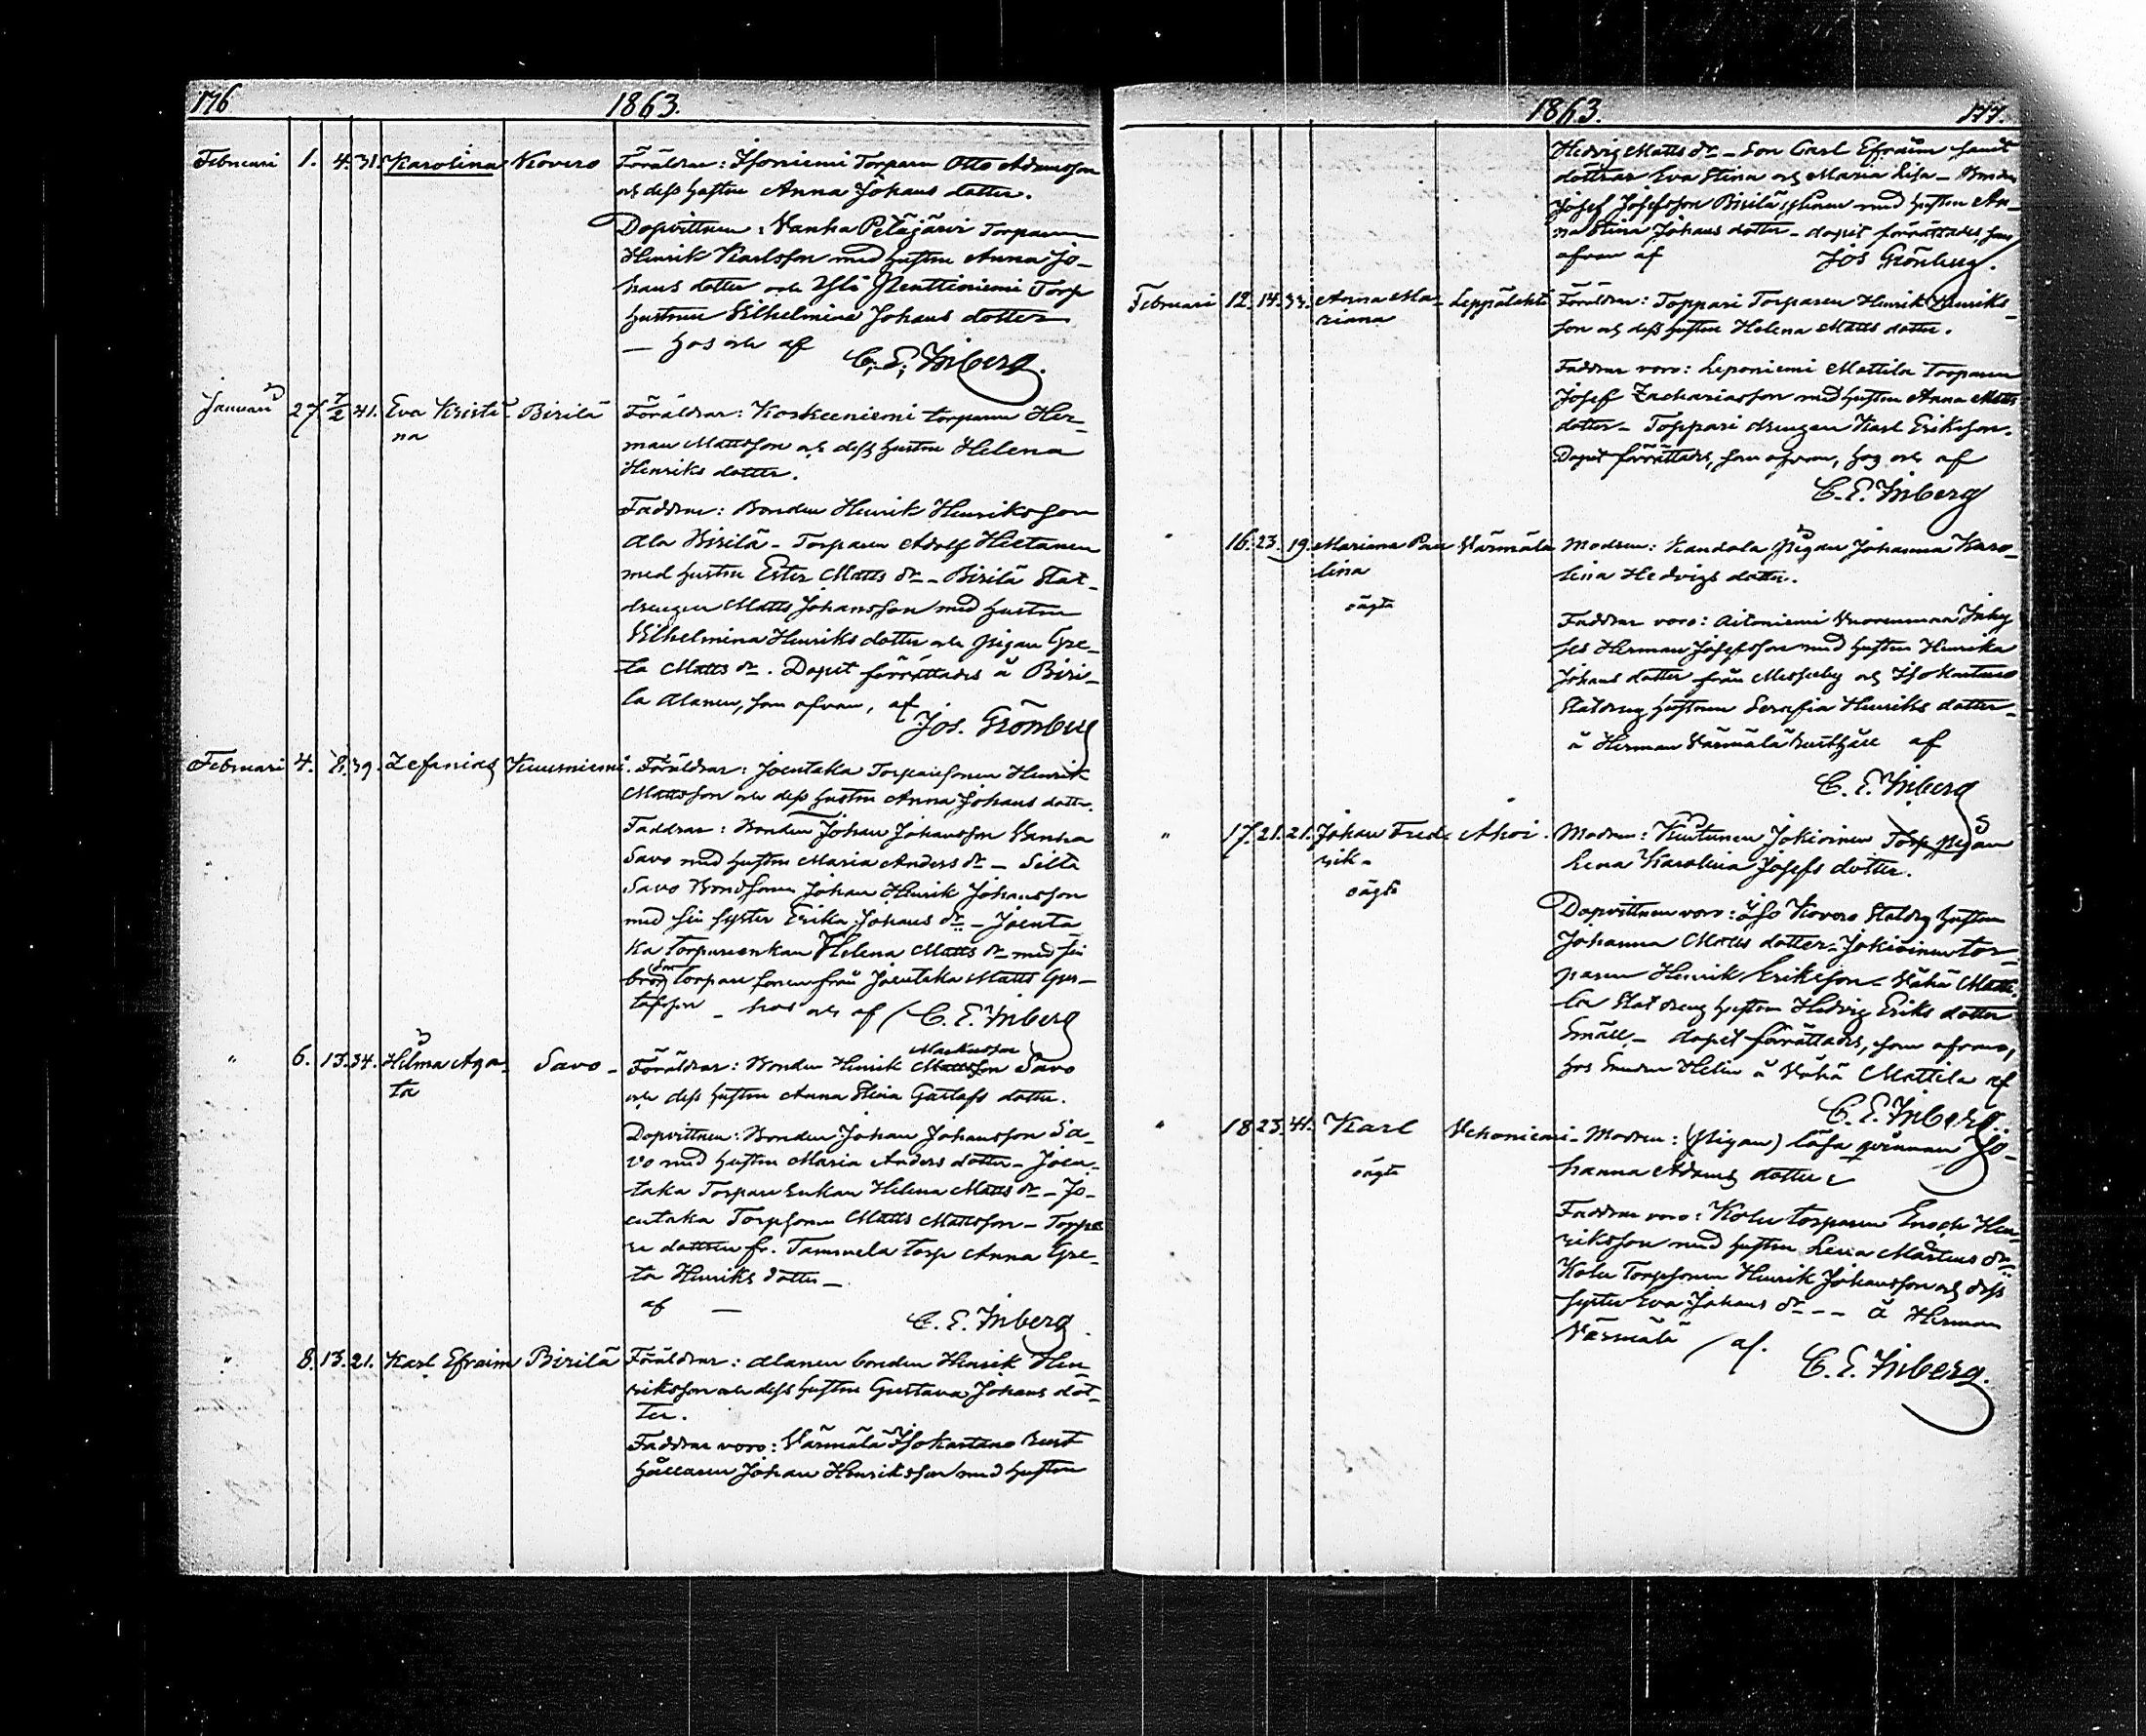 176
1863.
Februari 1. 4. 31. Karolina Kovero Föräldrar: Isoniemi Torparn Otto Adamsson
och dess hustru Anna Johans dotter.
Dopvittnen: Vanha Petäjärvi Torparen
Henrik Karlsson med hustru Anna Jo-
hans dotter och Yli Penttiniemi Torp
hustrun Vilhelmina Johans dotter
— hos och af C. E. Inberg.
Januari 27. 7/2 41. Eva Kristi- Birilä Föräldrar: Koskeeniemi torparen Her-
na man Mattsson och dess hustru Helena
Henriks dotter.
Faddrar: Bonden Henrik Henriksson
Ala Birilä - Torparen Adolf Hietanen
med hustru Ester Matts dr - Birilä Stat-
drengen Matts Johansson med hustru
Vilhelmina Henriks dotter och pigan Gre-
ta Matts dr. Dopet förrättades å Biri-
la Alanen, som ofvan, af
Jos. Grönberg
Februari 4. 8. 39. Zefanias Kuusniemi. Föräldrar: Joentaka Torparesonen Henrik
Mattsson och dess hustru Anna Johans dotter.
Faddrar: Bonden Johan Johansson Vanha
Savo med hustru Maria Anders dr - Silta
Savo Bondsonen Johan Henrik Johansson
med sin syster Erika Johans dr - Joenta
ka torpareenkan Helena Matts dr med sin
bror torpare sonen från Joentaka Matts Gus-
tafsson - hos och af C. E. Inberg
" 6. 13. 34. Hilma Aga- Savo - Föräldrar: Bonden Henrik Mattsson Markusson Savo
ta och dess hustru Anna Stina Gustafs dotter.
Dopvittnen: Bonden Johan Johansson Sa-
vo med hustru Maria Anders dotter - Joen-
taka Torpare Enkan Helena Matts dr - Jo-
entaka Torpsonen Matts Mattsson - Torpa
re dottren fr. Tammela torp Anna Gre-
ta Henriks dotter —
af — C. E. Inberg
" 8. 13. 21. Karl Efraim Birilä Föräldrar: Alanen bonden Henrik Hen-
riksson och dess hustru Gustava Johans dot-
ter.
Faddrar voro: Värmälä Isokartano Rust
hållaren Johan Henriksson med hustru
1863.
177.
Hedvig Matts dr - Son Carl Efraim samt
döttrar Eva Stina och Maria Lisa - Bonden
Josef Josefsson Birilä med hustru An-
na Stina Johans dotter - dopet förrättades, som
ofvan af Jos Grönberg.
Februari 12. 14. 33. Anna Ma- Leppälahti Föräldrar: Toppari Torparen Henrik Henriks-
riana son och dess hustru Helena Matts dotter.
Faddrar voro: Leponiemi Mattila Torparen
Josef Zachariasson med hustru Anna Matts
dotter - Toppari drengen Karl Eriksson.
Dopet förrättades, som ofvan, hos och af
C. E. Inberg
" 16. 23. 19. Mariana Pau Värmälä Modren: Kandola pigan Johanna Karo-
lina lina Hedvigs dotter.
oägta
Faddrar voro: Aitoniemi Inhy
ses Herman Josefsson med hustru Henrika
Johans dotter från Messuby och Isokartano
Statdreng hustrun Serafia Henriks dotter -
å Herman Värmälä Rusthåll af
C. E. Inberg
" 17. 21. 21. Johan Fred- Ahoi. Modren: Jokioinen Torp pigan
rik - Lena Karolina Josefs dotter.
oägta
Dopvittnen voro: Iso Kovero Statdrg hustrun
Johanna Matts dotter - Jokioinen tor-
paren Henrik Eriksson - Vähä Matti-
la Statdreng hustrun Hedvig Eriks dotter
Småll - dopet förrättades, som ofvan,
hos Helin å Vähä Mattila af
C. E. Inberg.
" 18 23. 41. Karl Vehoniemi - Modren: (pigan) lösa qvinnan Jo-
oägta hanna Adams dotter
Faddrar voro: Kolu torparen Enoch Hen-
riksson med hustru Lena Mårtens dr -
Kolu Torpsonen Henrik Johansson och dess
syster Eva Johans dr - - - å Herman
Värmälä / af. C. E. Inberg.